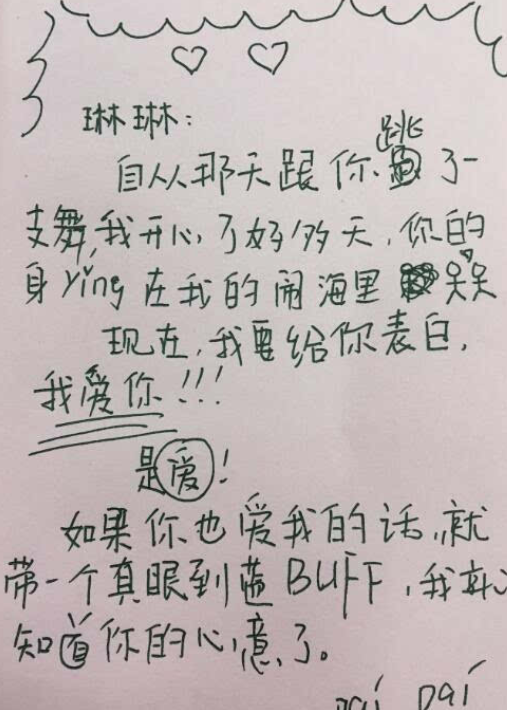 琳琳:
自从那天跟你跳了一
支舞,我开心了好多天,你的
身yǐng在我的闹海里
现在,我要给你表白,
我爱你!!!
是爱!
如果你也爱我的话,就
带一个真眼到蓝BUFF,我就
知道你的心意了。